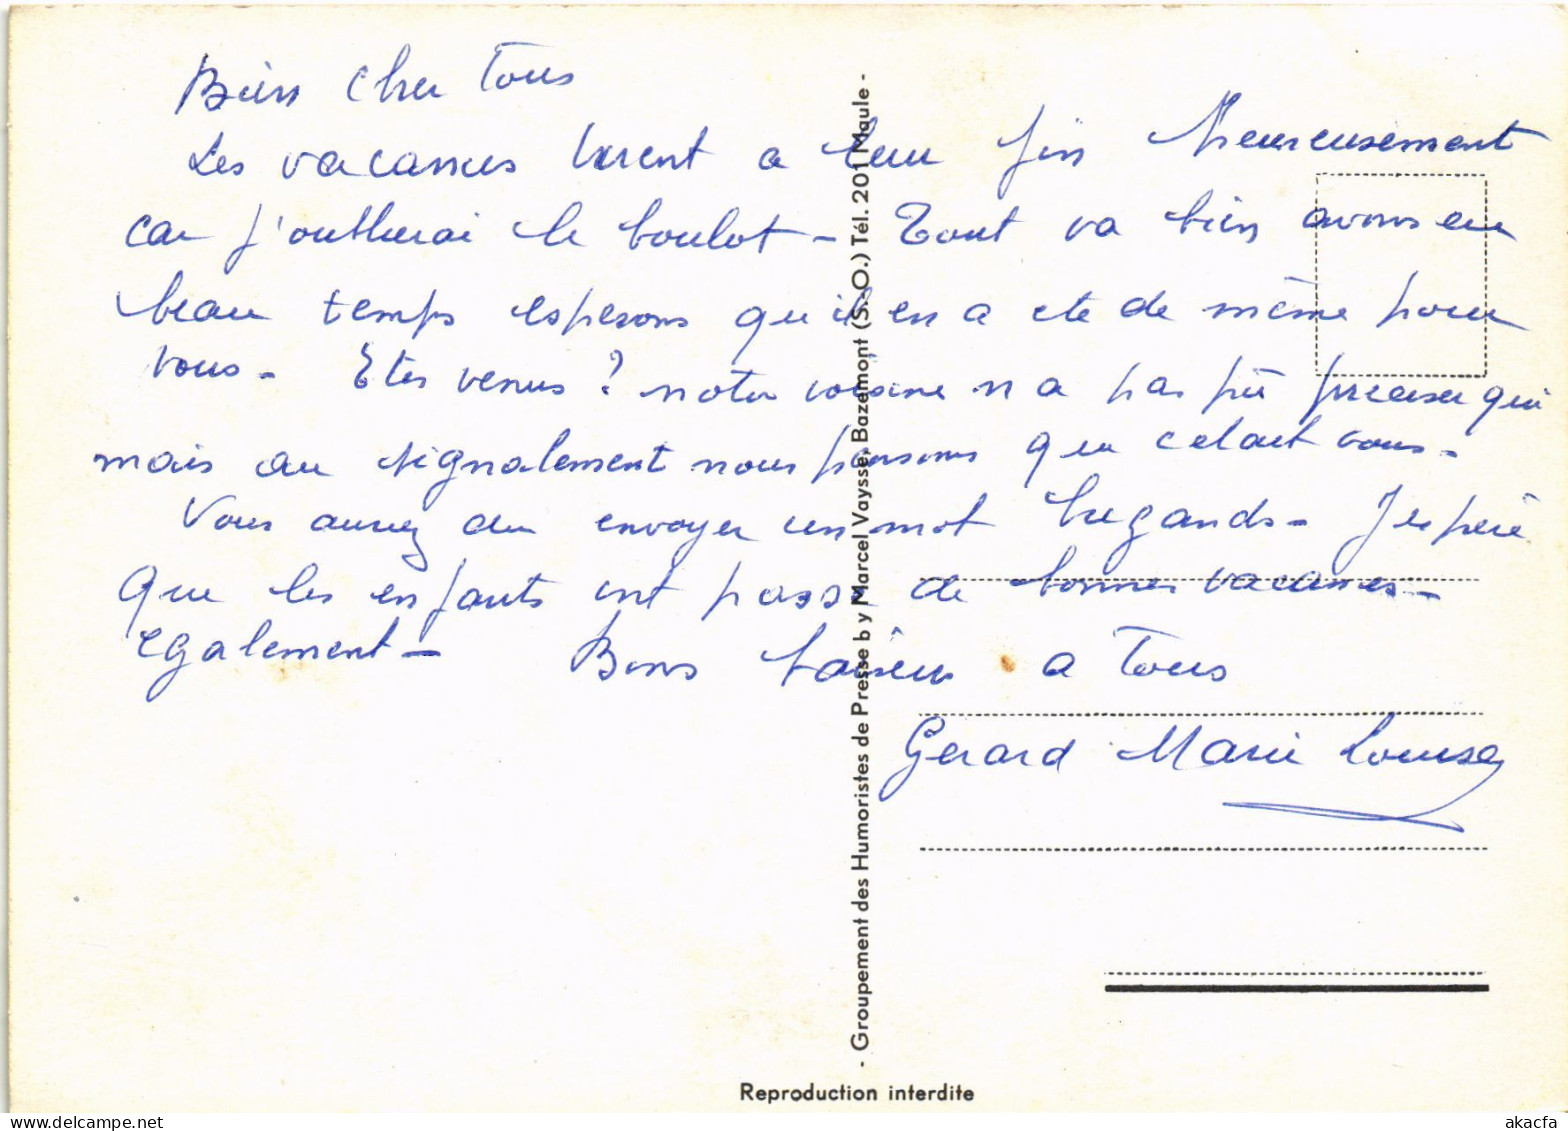 Bien cher Tous
Les vacances tirent a leur fin heureusement
car j'oublierai le boulot - Tout va bien avons eu
beau temps esperons qu'il en a ete de même pour
vous - Etes venus ? notre voisine n a pas pu preciser qui
mais au signalement nous pensons que cetait vous -
Vous auriez du envoyer un mot brigands - J espere
que les enfants ont passe de bonnes vacances -
egalement - Bons baisers a Tous
Gerard Marie Louise
- Groupement des Humoristes de Presse by Marcel Vaysse, Bazemont (S.-O.) Tél. 201 Maule -
Reproduction interdite
delcampe.net
akacfa